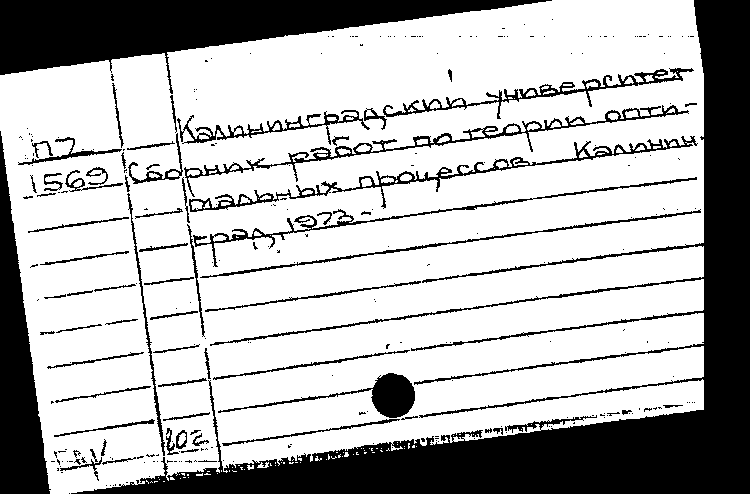 Калининградский университет
П7
1569 Сборник работ по теории опти-
мальных процессов. Калинин-
град, 1973-
802